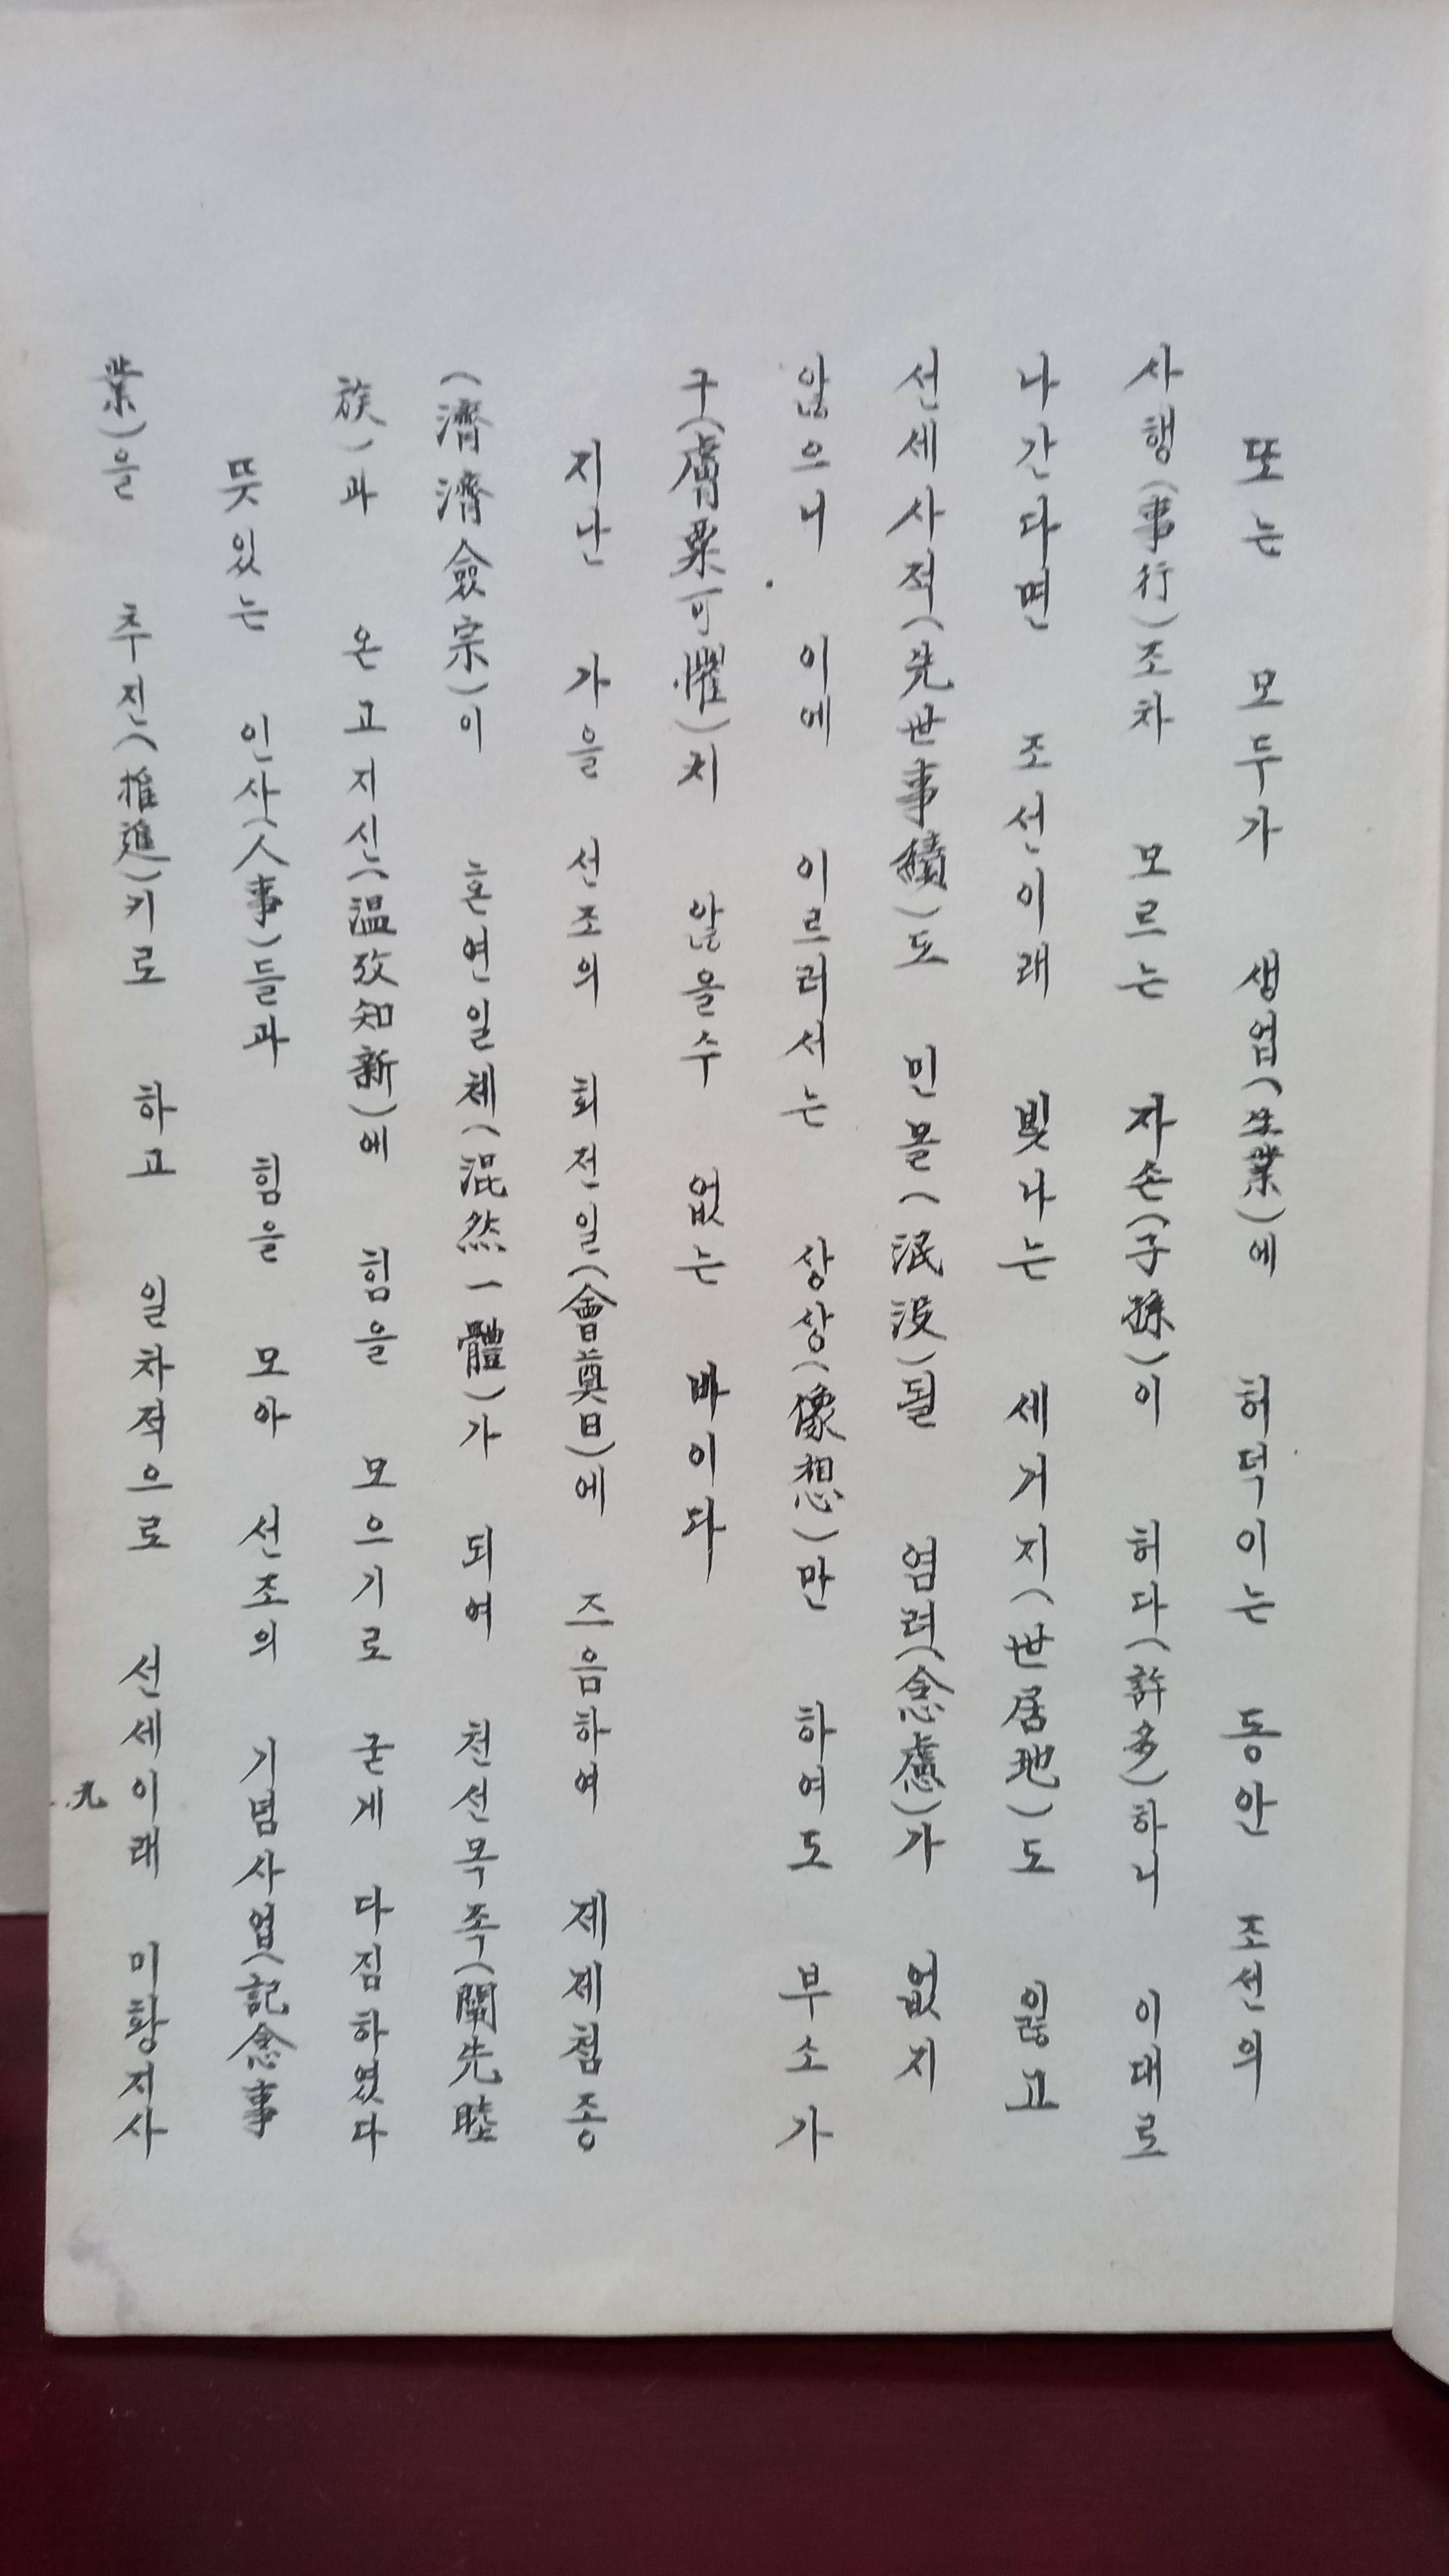 또는 모두가 생업(生業)에 허덕이는 동안 조선의
사행(事行)조차 모르는 자손(子孫)이 허다(許多)하니 이대로
나간다면 조선이래 빛나는 세거지(世居地)도 잃고
선세사적(先世事績)도 민몰(泯沒)될 염려(念慮)가 없지
않으니 이에 이르러서는 상상(像想)만 하여도 부소가
구(膚粟可懼)치 않을수 없는 바이다
지난 가을 선조의 회전일(會奠日)에 즈음하여 제제첨종
(濟濟僉宗)이 혼연일체(混然一體)가 되여 천선목족(闡先睦
族)과 온고지신(温攷知新)에 힘을 모으기로 굳게 다짐하였다
뜻있는 인사(人事)들과 힘을 모아 선조의 기념사업(記念事
業)을 추진(推進)키로 하고 일차적으로 선세이래 미황지사
九